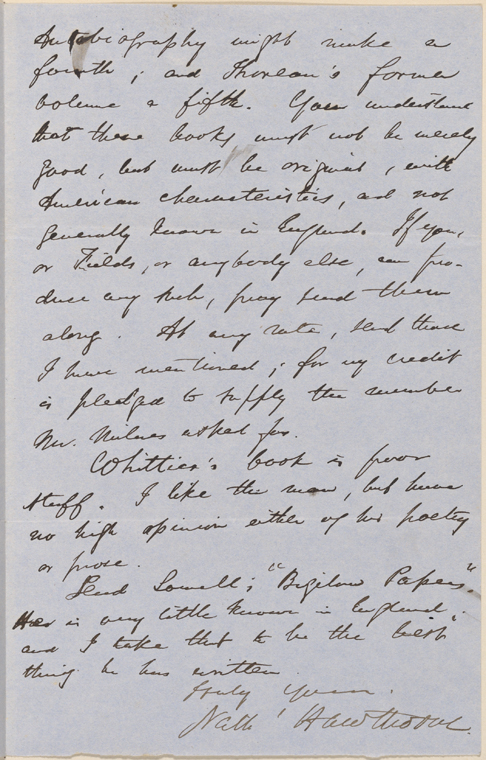 Autobiography might make a
fourth; and Thoreau's former
volume a fifth. You understand
that these books must not be merely
good, but must be original, with
American characteristics, and not
generally known in England. If you,
or Fields, or anybody else, can pro-
duce any such, pray send them
along. At any rate, send those
I have mentioned; for my credit
is pledged to supply the number
Mr. Milnes asked for.
Whittier's book is poor
stuff. I like the man, but have
no high opinion either of his poetry
or prose.
Send Lowell's "Biglow Papers."
He is very little known in England,
and I take that to be the best
thing he has written.
Truly Yours.
Nath' Hawthorne.